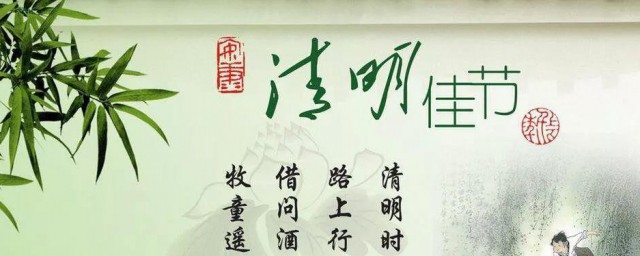 安康
清明佳节
清明时
路上行
借问酒
牧童遥